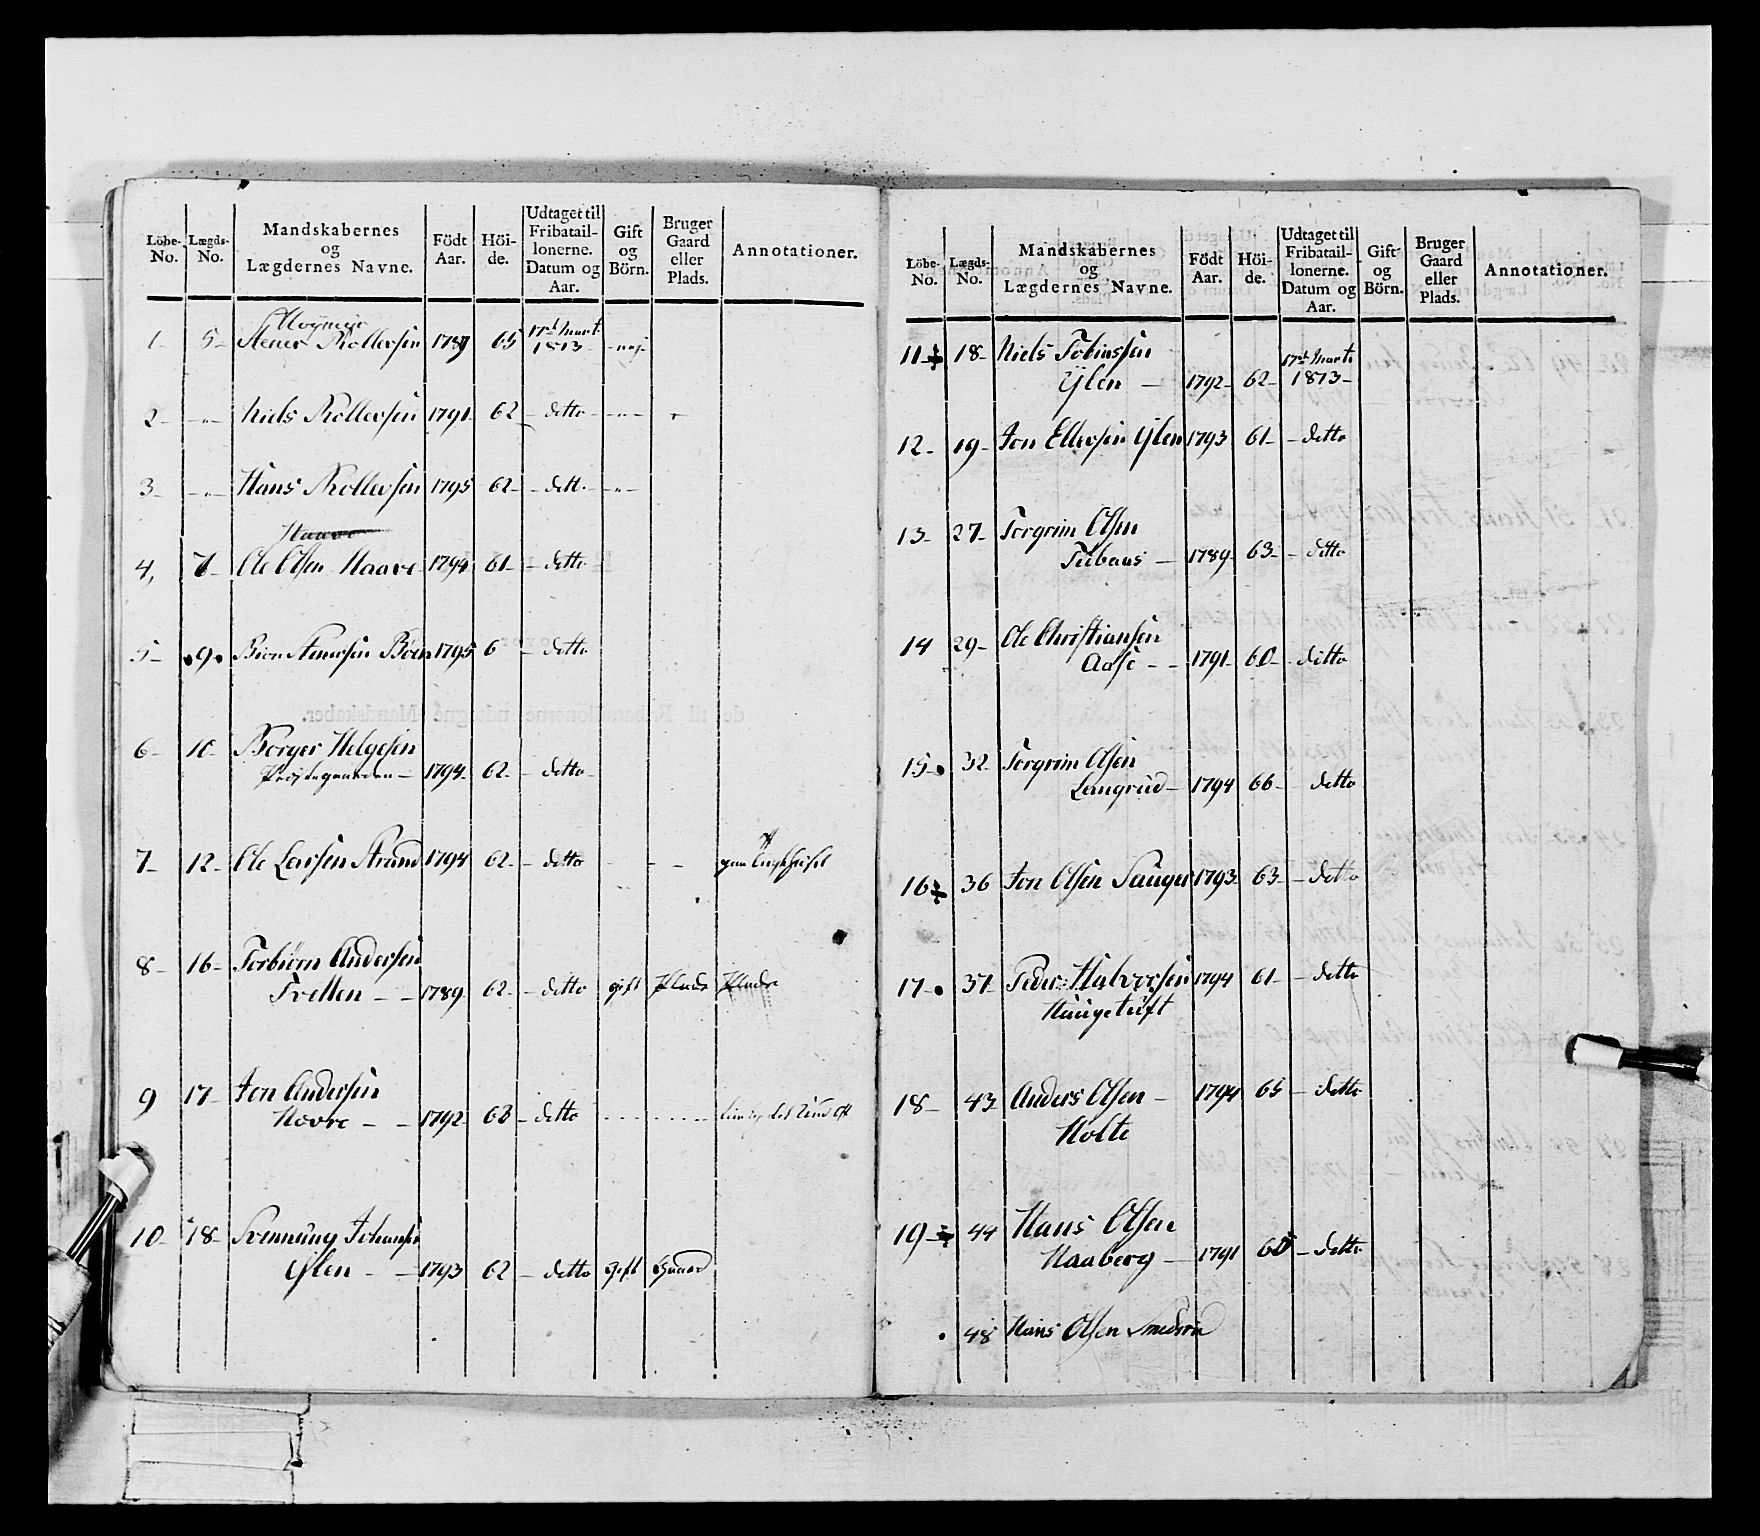 Löbe- No. Lægds- No. Mandskabernes og Lægdernes Navne. Födt Aar. Höi- de. Udtaget til Fribatail- lonerne. Datum og Aar. Gift og Börn. Bruger Gaard eller Plads. Annotationer.
1- 5- Stener Rollefsen 1789 65 17de Marts 1813- nej-
2- -"- Niels Rollefsen 1791 62 - detto -"-
3- -"- Hans Rollefsen 1795 62- - dett. -"-
Haave
4, 7- Ole Olsen Haave 1794 61- - detto
5- 9 1795 6 - detto
6- 10- Borger Helgesen
Præstegaarden- 1794- 62- - detto-
7- 12- Ole Larsen Strand 1794 62- - detto - - -
8- 16- Torbiørn Andersen
Tvetten - - 1789 62- - detto gift Plads Plads
9 17- Jon Andersen
Hovre - - 1792- 62- - detto
10- 18- Svennung Johansen
Ylen - - 1793 62 - detto Gift Gaard
Löbe- No. Lægds- No. Mandskabernes og Lægdernes Navne. Födt Aar. Höi- de. Udtaget til Fribatail- lonerne. Datum og Aar. Gift og Börn. Bruger Gaard eller Plads. Annotationer.
11 18- Niels Tobiassen
Ylen - 1792- 62- 17de Marts 1813-
12- 19- Jon Ellefsen Ylen 1793 61- - detto
13- 27- Torgrim Olsen
- 1789- 63- - detto
14 29- Ole Christiansen
Aase - - 1791- 60- - ditto
15- 32- Torgrim Olsen
Langrud- 1794 66- - detto
16 36 Jon Olsen Sauger 1793 63- - detto
17- 37- Peder Halvorsen 1794 61- - detto
Haugetuft
18- 43- Anders Olsen - 1794 65 - detto
Holte
19- 44 Hans Olsen
Haaberg - 1791 - detto
48 Hans Olsen